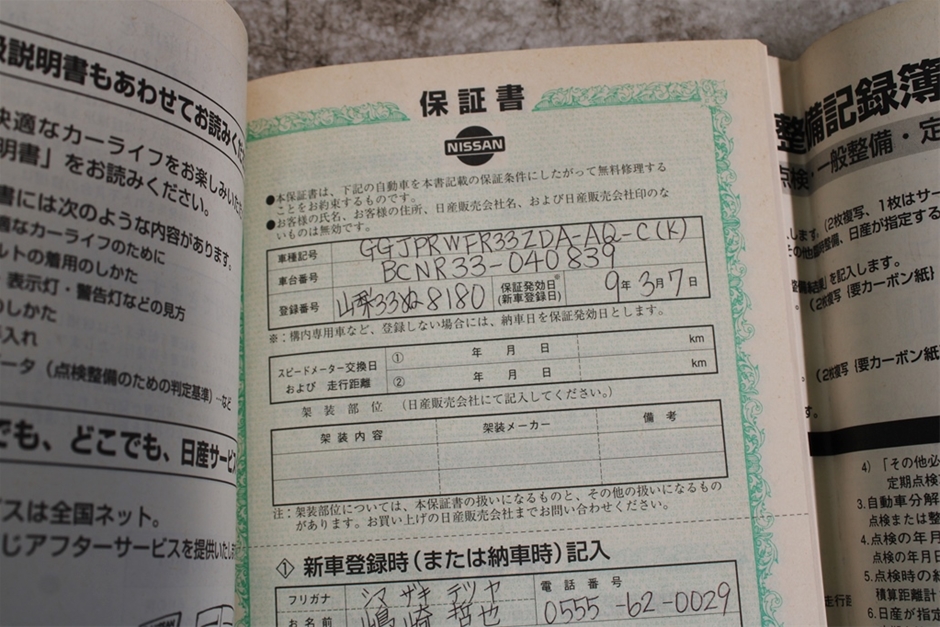 扱説明書もあわせてお読みく
快適なカーライフをお楽しみいただ
明書」をお読みください。
書には次のような内容があります。
適なカーライフのために
ルトの着用のしかた
・表示灯・警告灯などの見方
しかた
入れ
ータ（点検整備のための判定基準）…など
でも、どこでも、日産サービス
スは全国ネット。
じアフターサービスを提供いたしま
保証書
NISSAN
●本保証書は、下記の自動車を本書記載の保証条件にしたがって無料修理する
ことをお約束するものです。
●お客様の氏名、お客様の住所、日産販売会社名、および日産販売会社印のな
いものは無効です。
車種記号 GGJPRWFR33ZDA-AQ-C(K)
車台番号 BCNR33-040839
登録番号 山梨33ぬ8180 保証発効日※ (新車登録日) 9年3月7日
※：構内専用車など、登録しない場合には、納車日を保証発効日とします。
スピードメーター交換日 および 走行距離
① 年 月 日 km
② 年 月 日 km
架装部位 （日産販売会社にて記入してください。）
架装内容 架装メーカー 備考
注：架装部位については、本保証書の扱いになるものと、その他の扱いになるもの
があります。お買い上げの日産販売会社までお問い合わせください。
① 新車登録時（または納車時）記入
フリガナ シマ ザキ テツ ヤ 電話番号
お名前 嶋崎 哲也 0555-62-0029
整備記録簿
点検・一般整備・定
します。（2枚複写、1枚はサー
その他整備、日産が指定する
」を記入します。
（2枚複写｛要カーボン紙｝
（2枚複写｛要カーボン紙
す。
4) 「その他必
定期点検
3.自動車分解
点検または整
4.点検の年月
点検の年月日
5.点検時の総
積算距離計
6.日産が指定